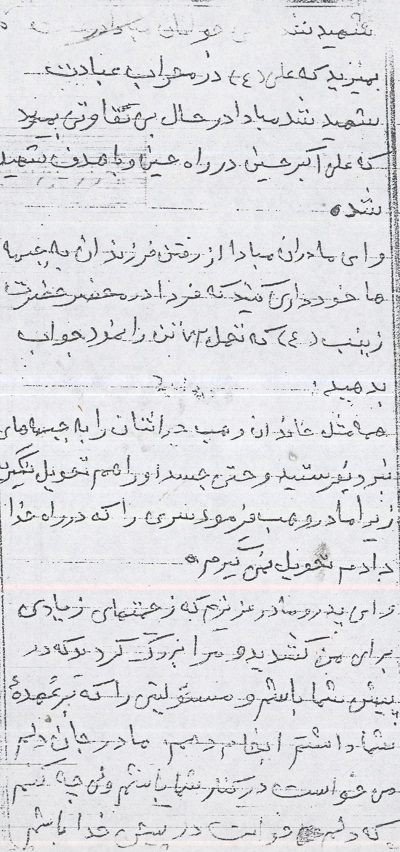 شهید شد
بمیرید که علی (ع) در محراب عبادت
شهید شد مبادا در حال بی تفاوتی بمیرد
که علی اکبر حسین در راه حسین و با هدف شهید
شده
و ای مادران مبادا از رفتن فرزندان به جبهه
ها خودداری کنید که فردا در محضر حضرت
زینب (ع) که تحمل ۷۲ تن را نمود جواب
بدهید
همه مثل خاندان وهب در اثنان را به جبهه های
نبرد بفرستید و حتی جسد او را هم تحویل نگیرید
زیرا مادر وهب فرمود سری را که در راه خدا
دادم تحویل نمی گیرم
و ای پدر و مادر عزیزم که زحمتهای زیادی
برای من کشیدید و مرا بزرگ کردید که در
پیش شما باشم و مسئولیتی را که بر عهدۀ
شما داشتم انجام دهم مادر جان دلم
می خواست در کنار شما باشم ولی چه کنم
که دلم خواست در پیش خدا باشم